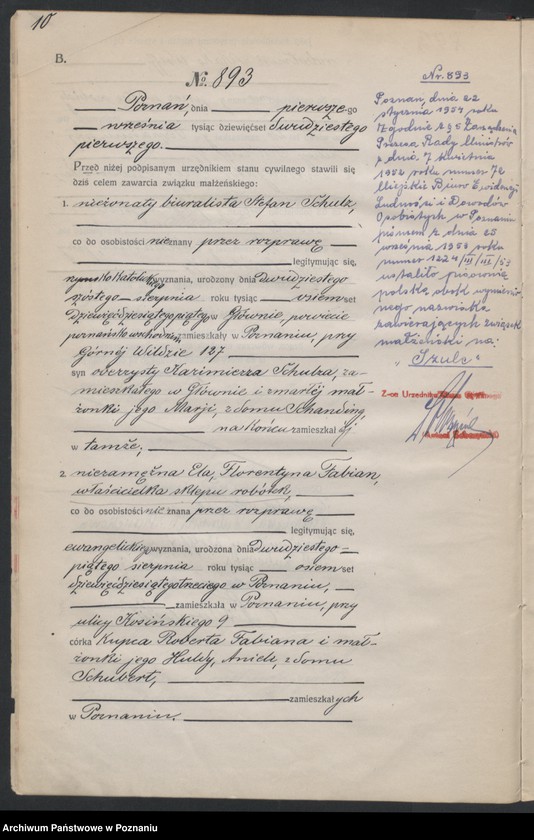 10
B.
No. 893
Poznań, dnia pierwszego
września tysiąc dziewięćset dwudziestego
pierwszego.
Przed niżej podpisanym urzędnikiem stanu cywilnego stawili się
dziś celem zawarcia związku małżeńskiego:
1. nieżonaty biuralista Stefan Schulz,
co do osobistości nieznany przez rozprawę
legitymując się,
rzymsko katolickiego wyznania, urodzony dnia dwudziestego
szóstego sierpnia roku tysiąc osiemset
dziewięćdziesiątego piątego w Głównie, powiecie
poznańsko wschodnim, zamieszkały w Poznaniu, przy
Górnej Wildzie 127
syn owerzysty Kazimierza Schulza, za-
mieszkałego w Głównie i zmarłej mał-
żonki jego Marji, z domu Schanding,
na końcu zamieszkałej
w tamże;
2. niezamężna Ela, Florentyna Fabian,
właścicielka sklepu robótek,
co do osobistości nie znana przez rozprawę
legitymując się,
ewangelickiego wyznania, urodzona dnia dwudziestego
piątego sierpnia roku tysiąc osiemset
dziewięćdziesiątego trzeciego w Poznaniu,
zamieszkała w Poznaniu, przy
ulicy Kosińskiego 9
córka kupca Roberta Fabiana i mał-
żonki jego Huldy, Anieli, z domu
Schubert,
zamieszkałych
w Poznaniu.
Nr. 893
Poznań, dnia 22
stycznia 1954 roku
Zgodnie z § 5 Zarządzenia
Prezesa Rady Ministrów
z dnia 7 kwietnia
1952 roku numer 72
Miejskie Biuro Ewidencji
Ludności i Dowodów
Osobistych w Poznaniu
pismem z dnia 25
września 1953 roku
numer 1224/III/III/53
ustaliło pisownię
polską obok wymienio-
nego nazwiska
zawierających związek
małżeński na:
"Szulc"
Z-ca Urzędnika Stanu Cywilnego
Archiwum Państwowe w Poznaniu